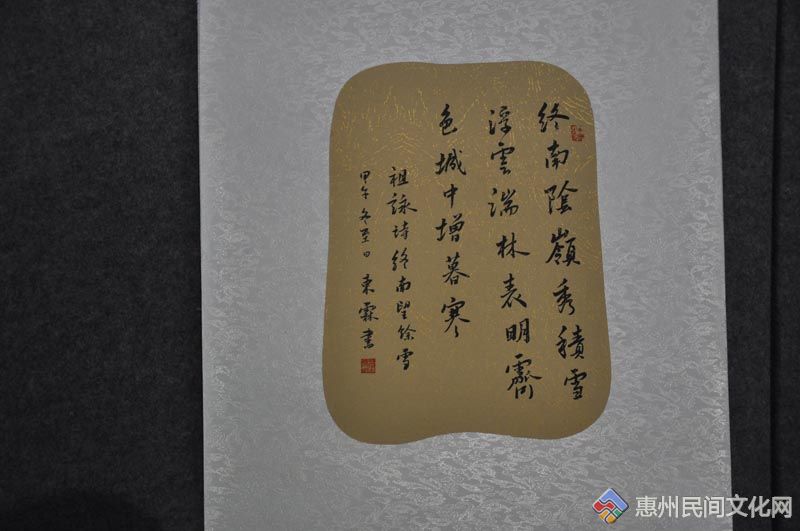 终南陰嶺秀積雪
浮雲湍林表明霽
色城中增暮寒
祖詠詩終南望馀雪
甲午冬至日東霖書
惠州民间文化网